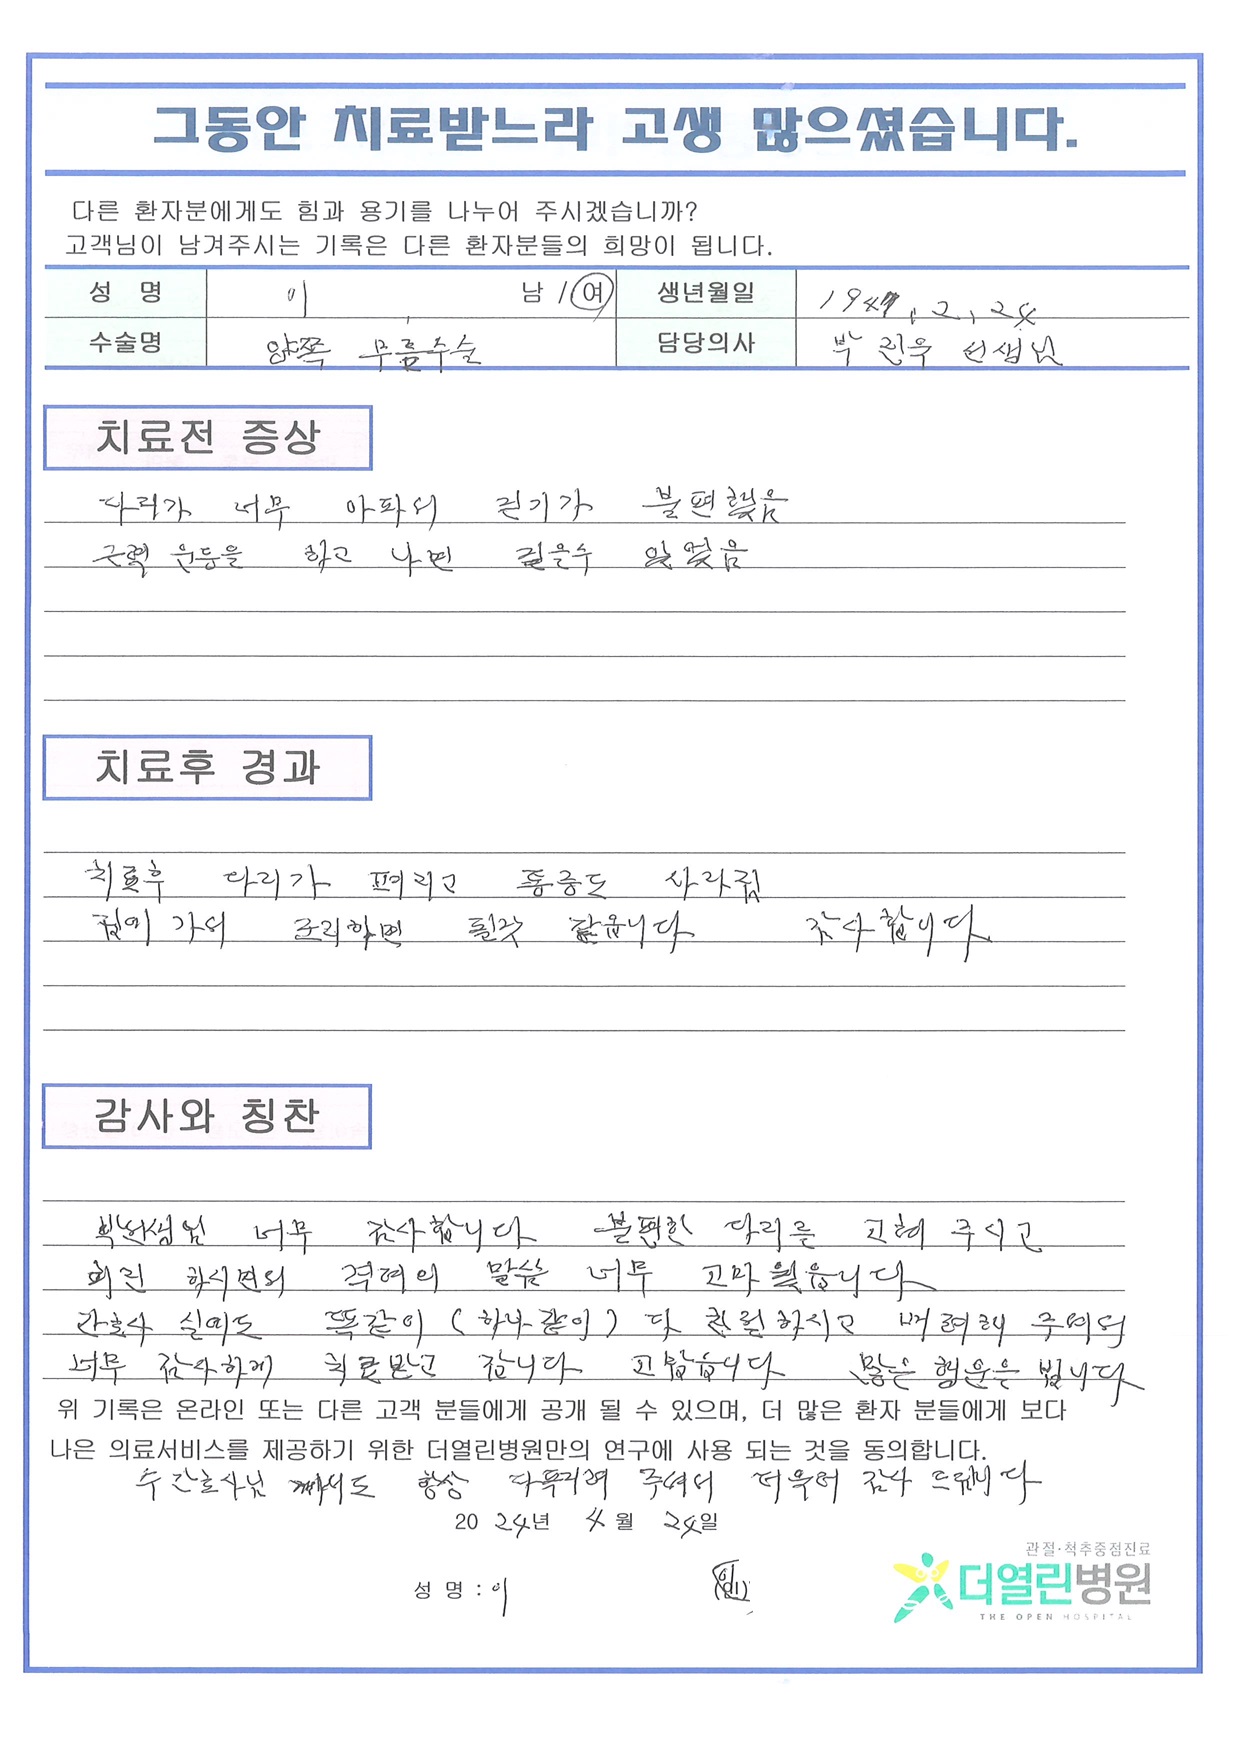 그동안 치료받느라 고생 많으셨습니다.
다른 환자분에게도 힘과 용기를 나누어 주시겠습니까?
고객님이 남겨주시는 기록은 다른 환자분들의 희망이 됩니다.
성 명 이 남 / 여 생년월일 1947. 2. 24
수술명 양쪽 무릎수술 담당의사 박 진우 선생님
치료전 증상
다리가 너무 아파서 걷기가 불편했음
근력 운동을 하고 나면 걸을수 있었음
치료후 경과
치료후 다리가 편리고 통증도 사라짐
집에 가서 조리하면 될것 같읍니다 감사합니다
감사와 칭찬
너무 감사합니다 불편한 다리를 고쳐 주시고
회진 하시면서 격려의 말씀 너무 고마웠읍니다
간호사 실에도 똑같이 (하나같이) 다 친절하시고 배려해 주셔서
너무 감사하게 치료받고 갑니다 고맙습니다 많은 행운을 빕니다
위 기록은 온라인 또는 다른 고객 분들에게 공개 될 수 있으며, 더 많은 환자 분들에게 보다
나은 의료서비스를 제공하기 위한 더열린병원만의 연구에 사용 되는 것을 동의합니다.
수간호사님 께서도 항상 다독거려 주셔서 더욱더 감사 드립니다
20 24년 4월 24일
성 명 : 이
관절·척추중점진료
더열린병원
THE OPEN HOSPITAL